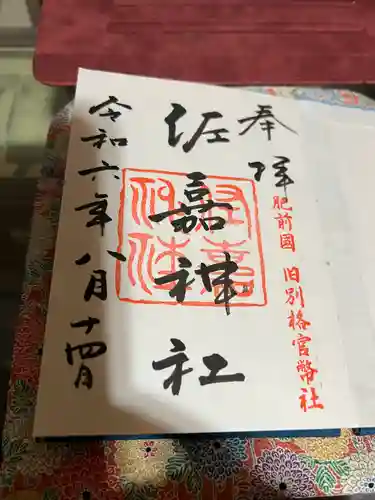 奉拝
肥前国 旧別格官幣社
佐嘉神社
令和六年八月十四日